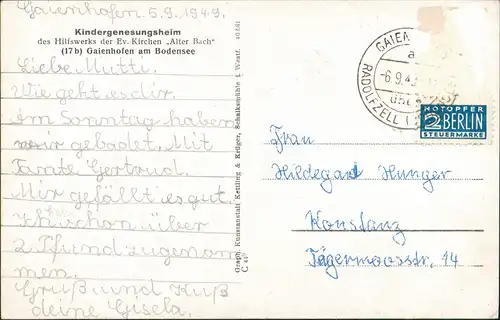 Gaienhofen 5.9.1949.
Kindergenesungsheim
des Hilfswerks der Ev. Kirchen „Alter Bach"
(17b) Gaienhofen am Bodensee
Liebe Mutti.
Wie geht es dir.
Am Sonntag haben
wir gebadet. Mit
Tante Gertrud.
Mir gefällt es gut.
Ich schon über
2 Pfund zugenom
men.
Gruß und Kuß
deine Gisela.
Graph. Kunstanstalt Kettling & Krüger, Schalksmühle i. Westf.
C
GAIEN
-6.9.49
RADOLFZELL
NOTOPFER
2 BERLIN
STEUERMARKE
Frau
Hildegard Hunger
Konstanz
Jägermoosstr. 14